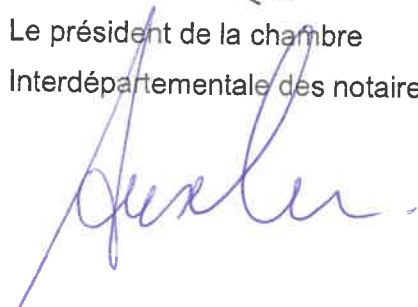 Le président de la chambre
Interdépartementale des notaire